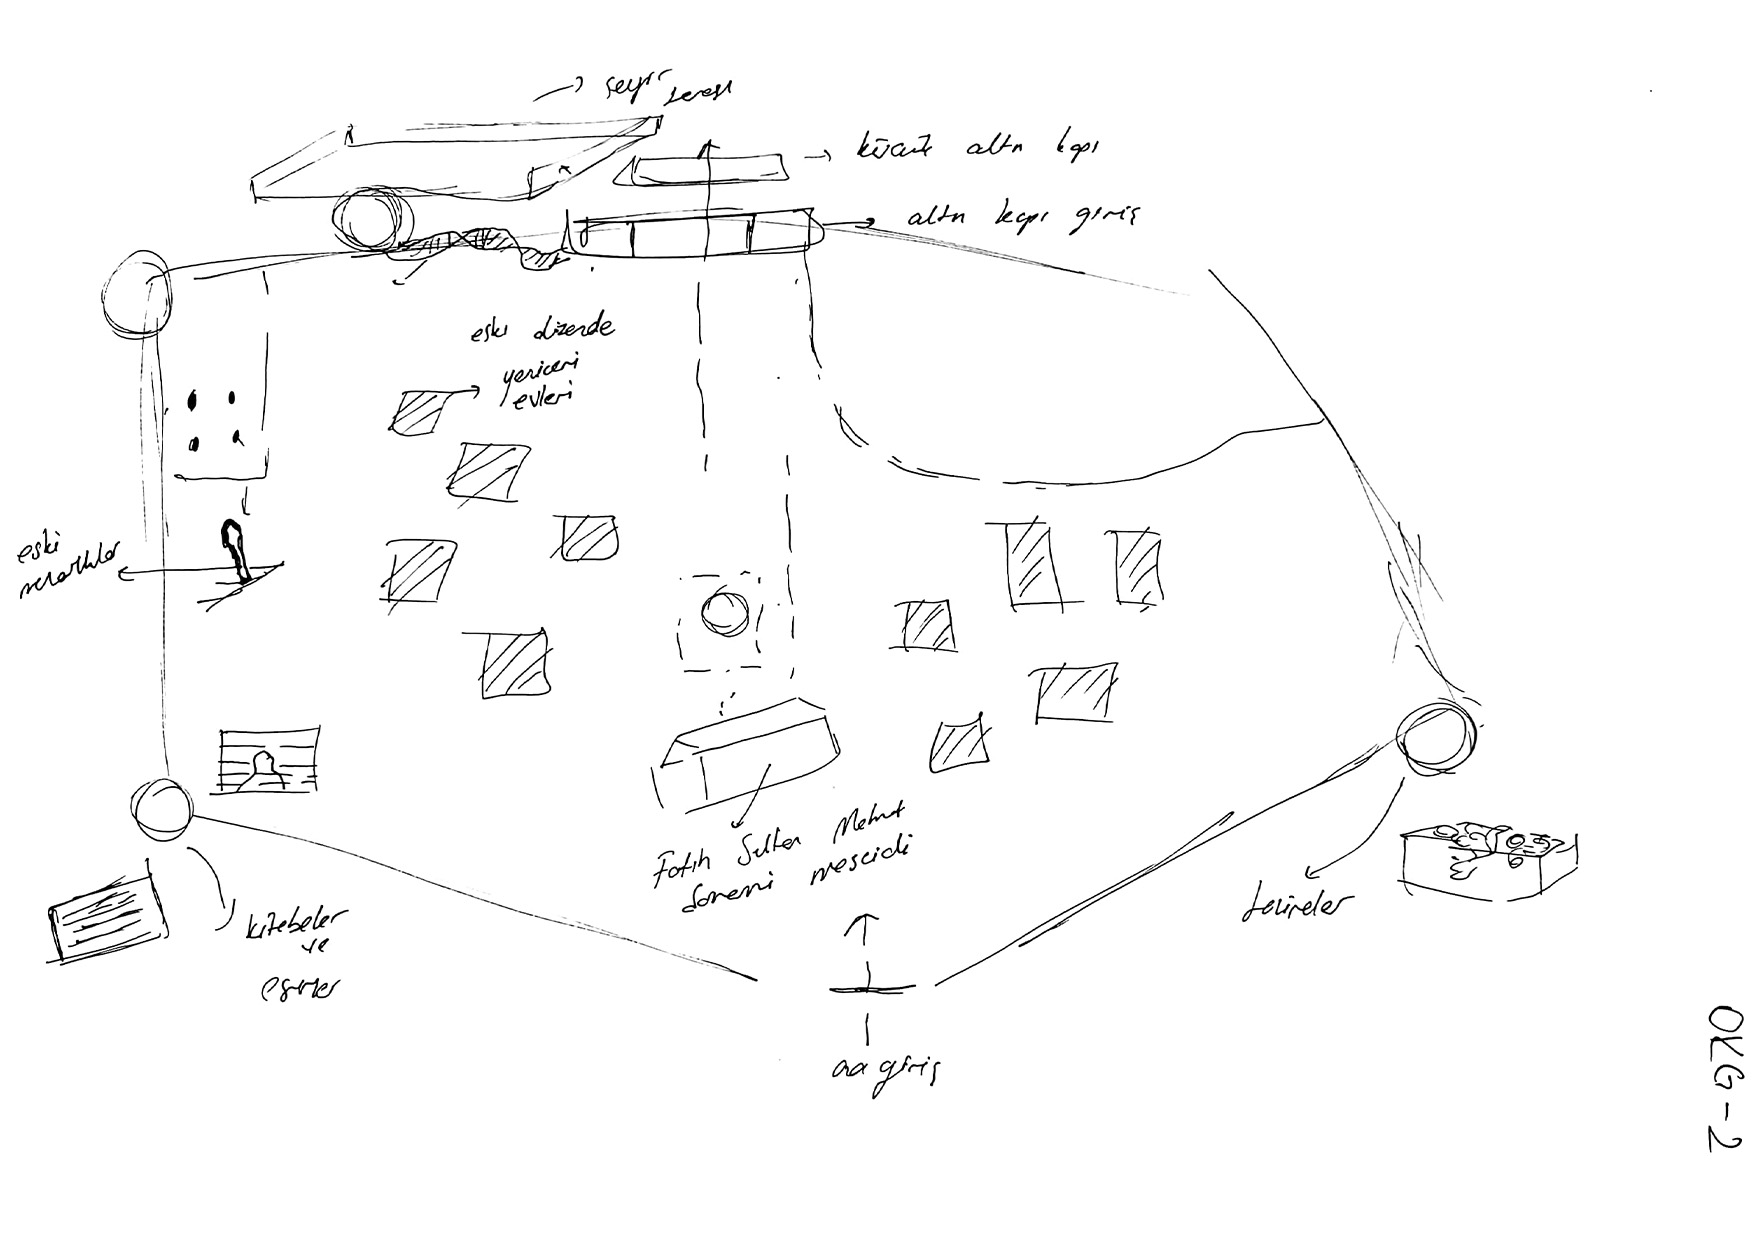 seyir
terası
küçük altın kapı
altın kapı giriş
eski düzende
yeniçeri
evleri
eski
mezarlıklar
Fatih Sultan Mehmet
dönemi mescidi
kitabeler
ve
esirler
hazineler
ana giriş
OKG-2